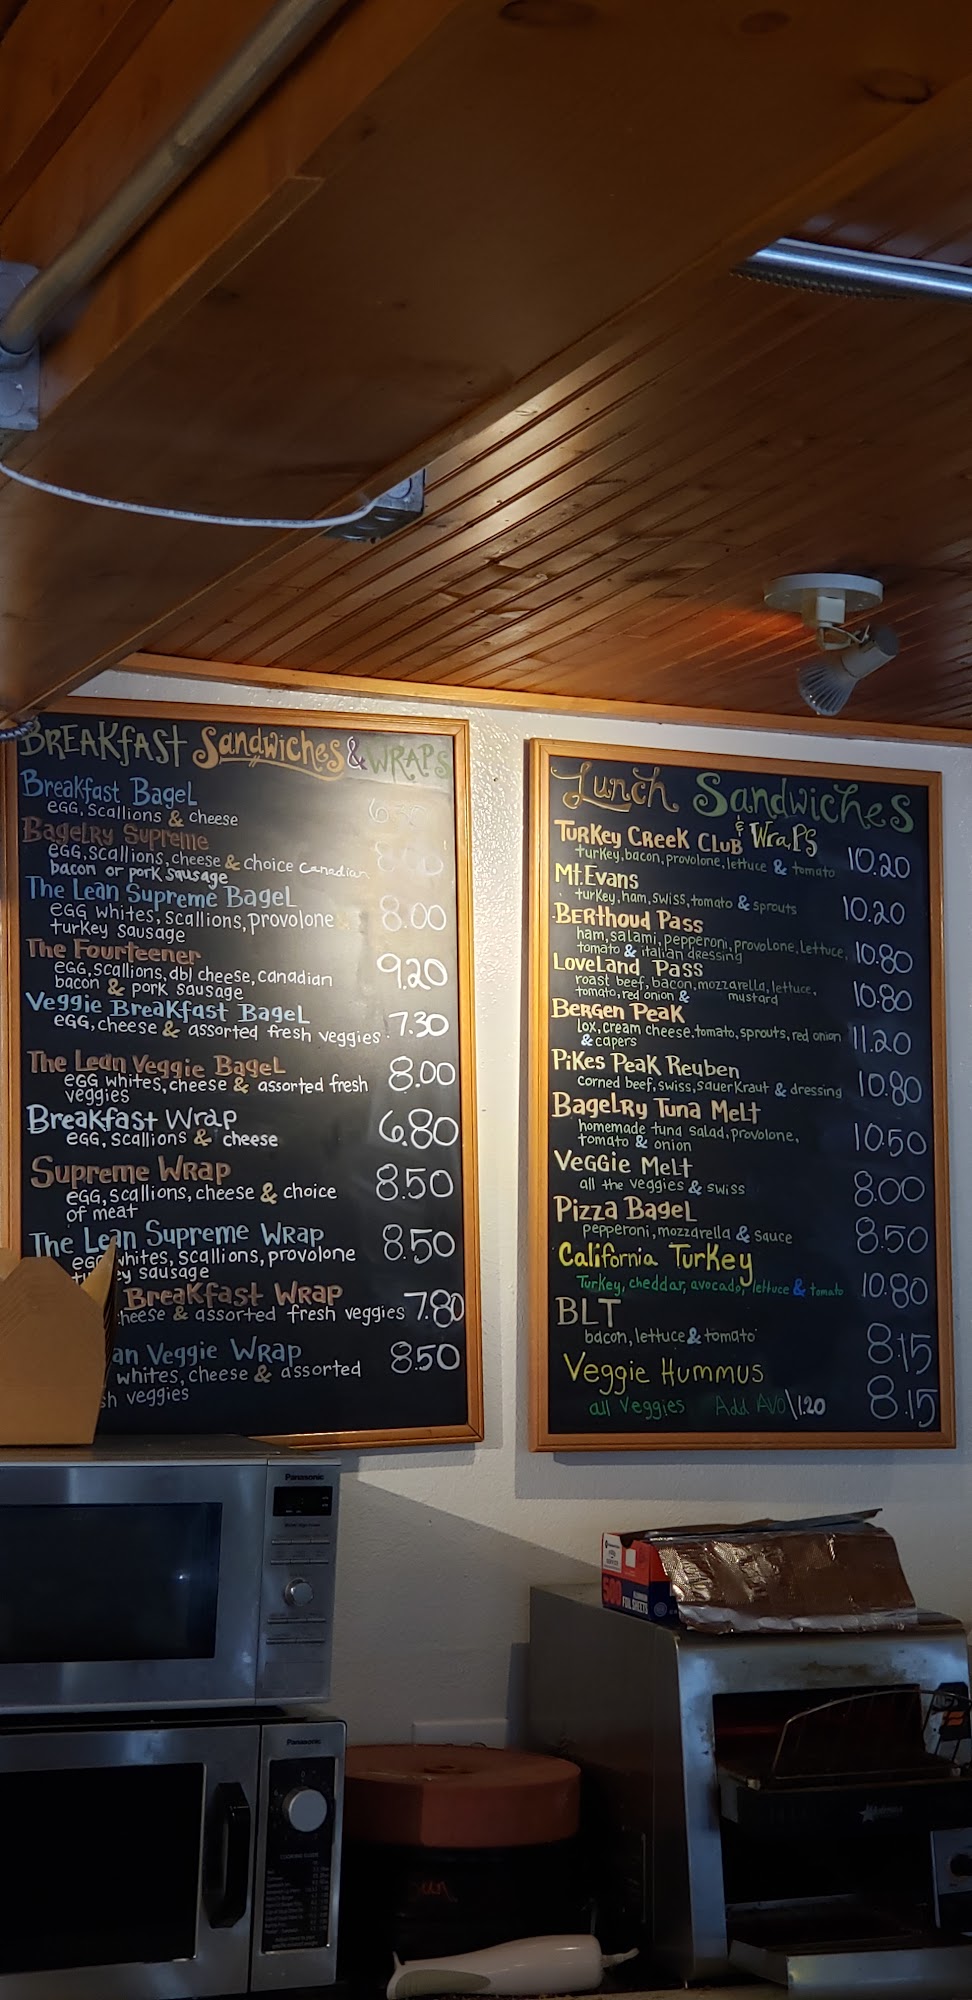 BREAKfAST Sandwiches & WRAPS
Breakfast Bagel
egg, scallions & cheese
Bagelry Supreme
egg, scallions, cheese & choice canadian
bacon or pork sausage
The Lean Supreme Bagel
egg whites, scallions, provolone 8.00
turkey sausage
The Fourteener
egg, scallions, dbl cheese, canadian 9.20
bacon & pork sausage
Veggie Breakfast Bagel
egg, cheese & assorted fresh veggies 7.30
The Lean Veggie Bagel 8.00
egg whites, cheese & assorted fresh
veggies
Breakfast Wrap 6.80
egg, scallions & cheese
Supreme Wrap 8.50
egg, scallions, cheese & choice
of meat
The Lean Supreme Wrap 8.50
egg whites, scallions, provolone
sausage
Breakfast Wrap 7.80
cheese & assorted fresh veggies
Veggie Wrap 8.50
whites, cheese & assorted
veggies
Lunch Sandwiches
& Wraps
Turkey Creek Club 10.20
turkey, bacon, provolone, lettuce & tomato
Mt. Evans
turkey, ham, swiss, tomato & sprouts 10.20
Berthoud Pass
ham, salami, pepperoni, provolone, lettuce, 10.80
tomato & italian dressing
Loveland Pass
roast beef, bacon, mozzarella, lettuce, 10.80
tomato, red onion & mustard
Bergen Peak
lox, cream cheese, tomato, sprouts, red onion 11.20
& capers
Pikes Peak Reuben
corned beef, swiss, sauerkraut & dressing 10.80
Bagelry Tuna Melt
homemade tuna salad, provolone, 10.50
tomato & onion
Veggie Melt
all the veggies & swiss 8.00
Pizza Bagel
pepperoni, mozzarella & sauce 8.50
California Turkey
Turkey, cheddar, avocado, lettuce & tomato 10.80
BLT
bacon, lettuce & tomato 8.15
Veggie Hummus
all veggies Add AVO \1.20 8.15
Panasonic
Panasonic
COOKING GUIDE
500
FOIL SHEETS